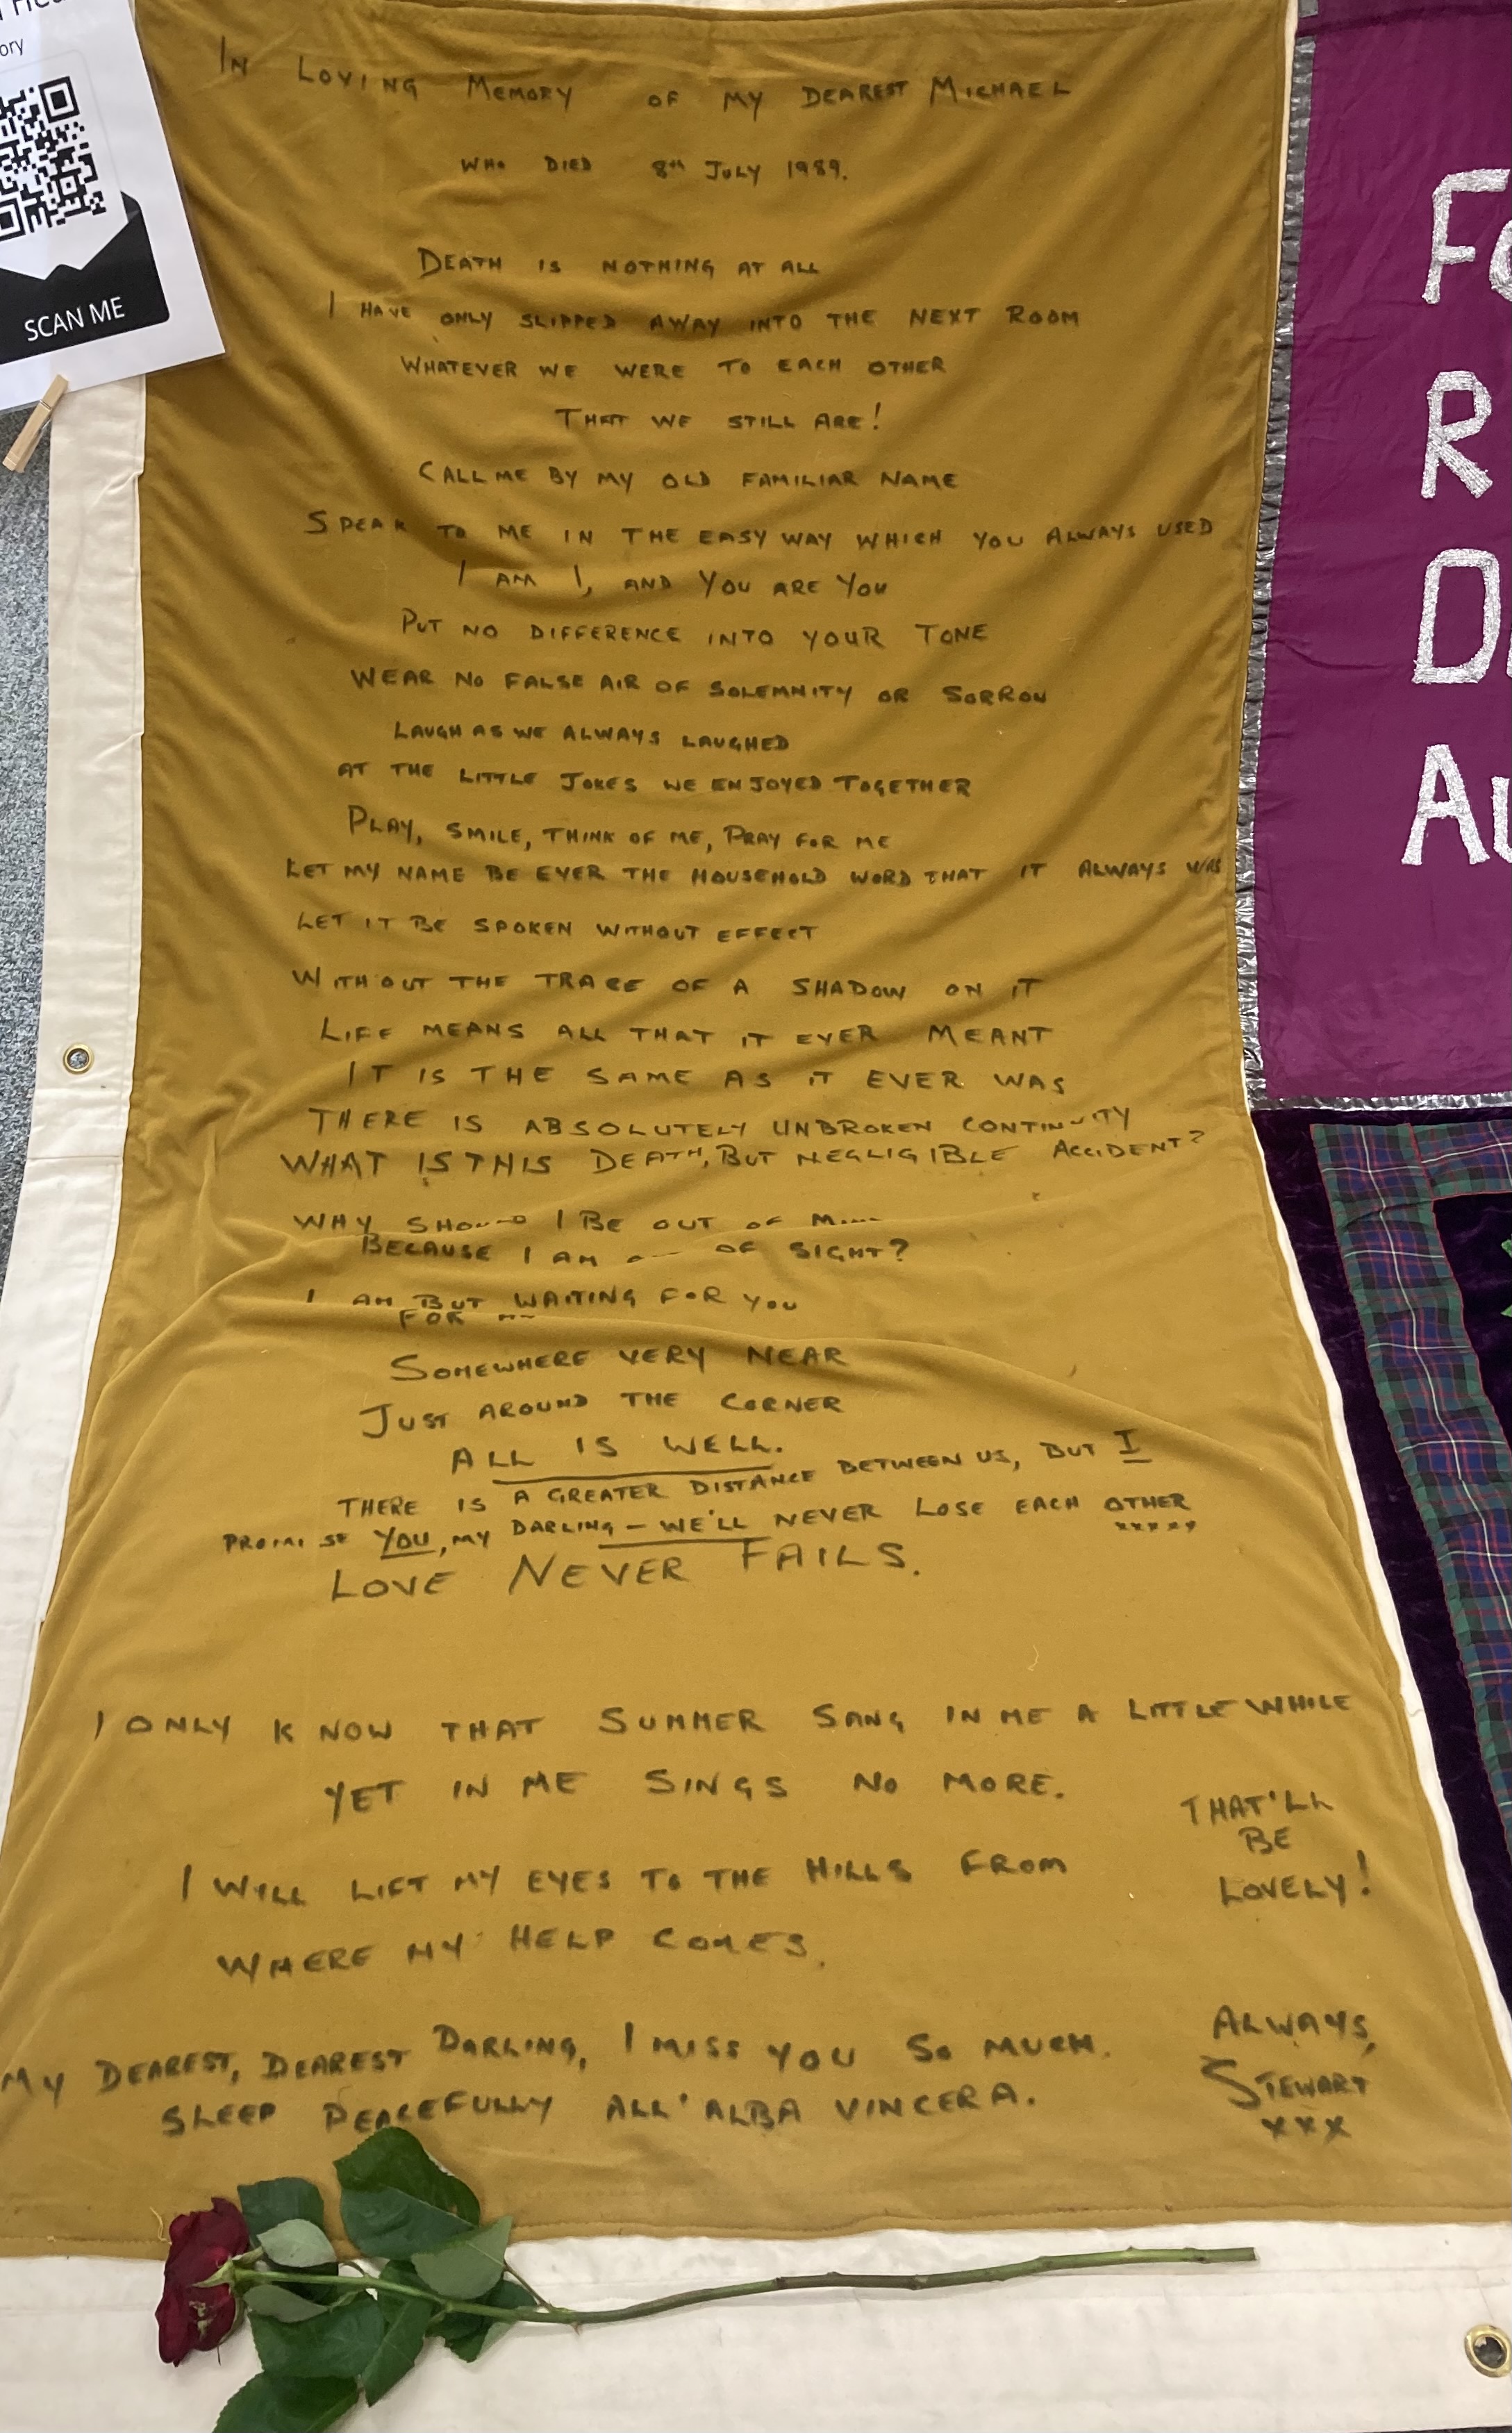 ory
SCAN ME
IN LOVING MEMORY OF MY DEAREST MICHAEL
WHO DIED 8TH JULY 1989.
DEATH IS NOTHING AT ALL
I HAVE ONLY SLIPPED AWAY INTO THE NEXT ROOM
WHATEVER WE WERE TO EACH OTHER
THAT WE STILL ARE!
CALL ME BY MY OLD FAMILIAR NAME
SPEAK TO ME IN THE EASY WAY WHICH YOU ALWAYS USED
I AM I, AND YOU ARE YOU
PUT NO DIFFERENCE INTO YOUR TONE
WEAR NO FALSE AIR OF SOLEMNITY OR SORROW
LAUGH AS WE ALWAYS LAUGHED
AT THE LITTLE JOKES WE ENJOYED TOGETHER
PLAY, SMILE, THINK OF ME, PRAY FOR ME
LET MY NAME BE EVER THE HOUSEHOLD WORD THAT IT ALWAYS WAS
LET IT BE SPOKEN WITHOUT EFFECT
WITHOUT THE TRACE OF A SHADOW ON IT
LIFE MEANS ALL THAT IT EVER MEANT
IT IS THE SAME AS IT EVER WAS
THERE IS ABSOLUTELY UNBROKEN CONTINUITY
WHAT IS THIS DEATH, BUT NEGLIGIBLE ACCIDENT?
WHY I BE OUT OF
BECAUSE I AM OF SIGHT?
I AM BUT WAITING FOR YOU
FOR
SOMEWHERE VERY NEAR
JUST AROUND THE CORNER
ALL IS WELL.
THERE IS A GREATER DISTANCE BETWEEN US, BUT I
PROMISE YOU, MY DARLING – WE'LL NEVER LOSE EACH OTHER
xxxxx
LOVE NEVER FAILS.
I ONLY KNOW THAT SUMMER SANG IN ME A LITTLE WHILE
YET IN ME SINGS NO MORE.
THAT'LL
BE
LOVELY!
I WILL LIFT MY EYES TO THE HILLS FROM
WHERE MY HELP COMES.
MY DEAREST, DEAREST DARLING, I MISS YOU SO MUCH.
SLEEP PEACEFULLY ALL'ALBA VINCERA.
ALWAYS,
STEWART
xxx
R